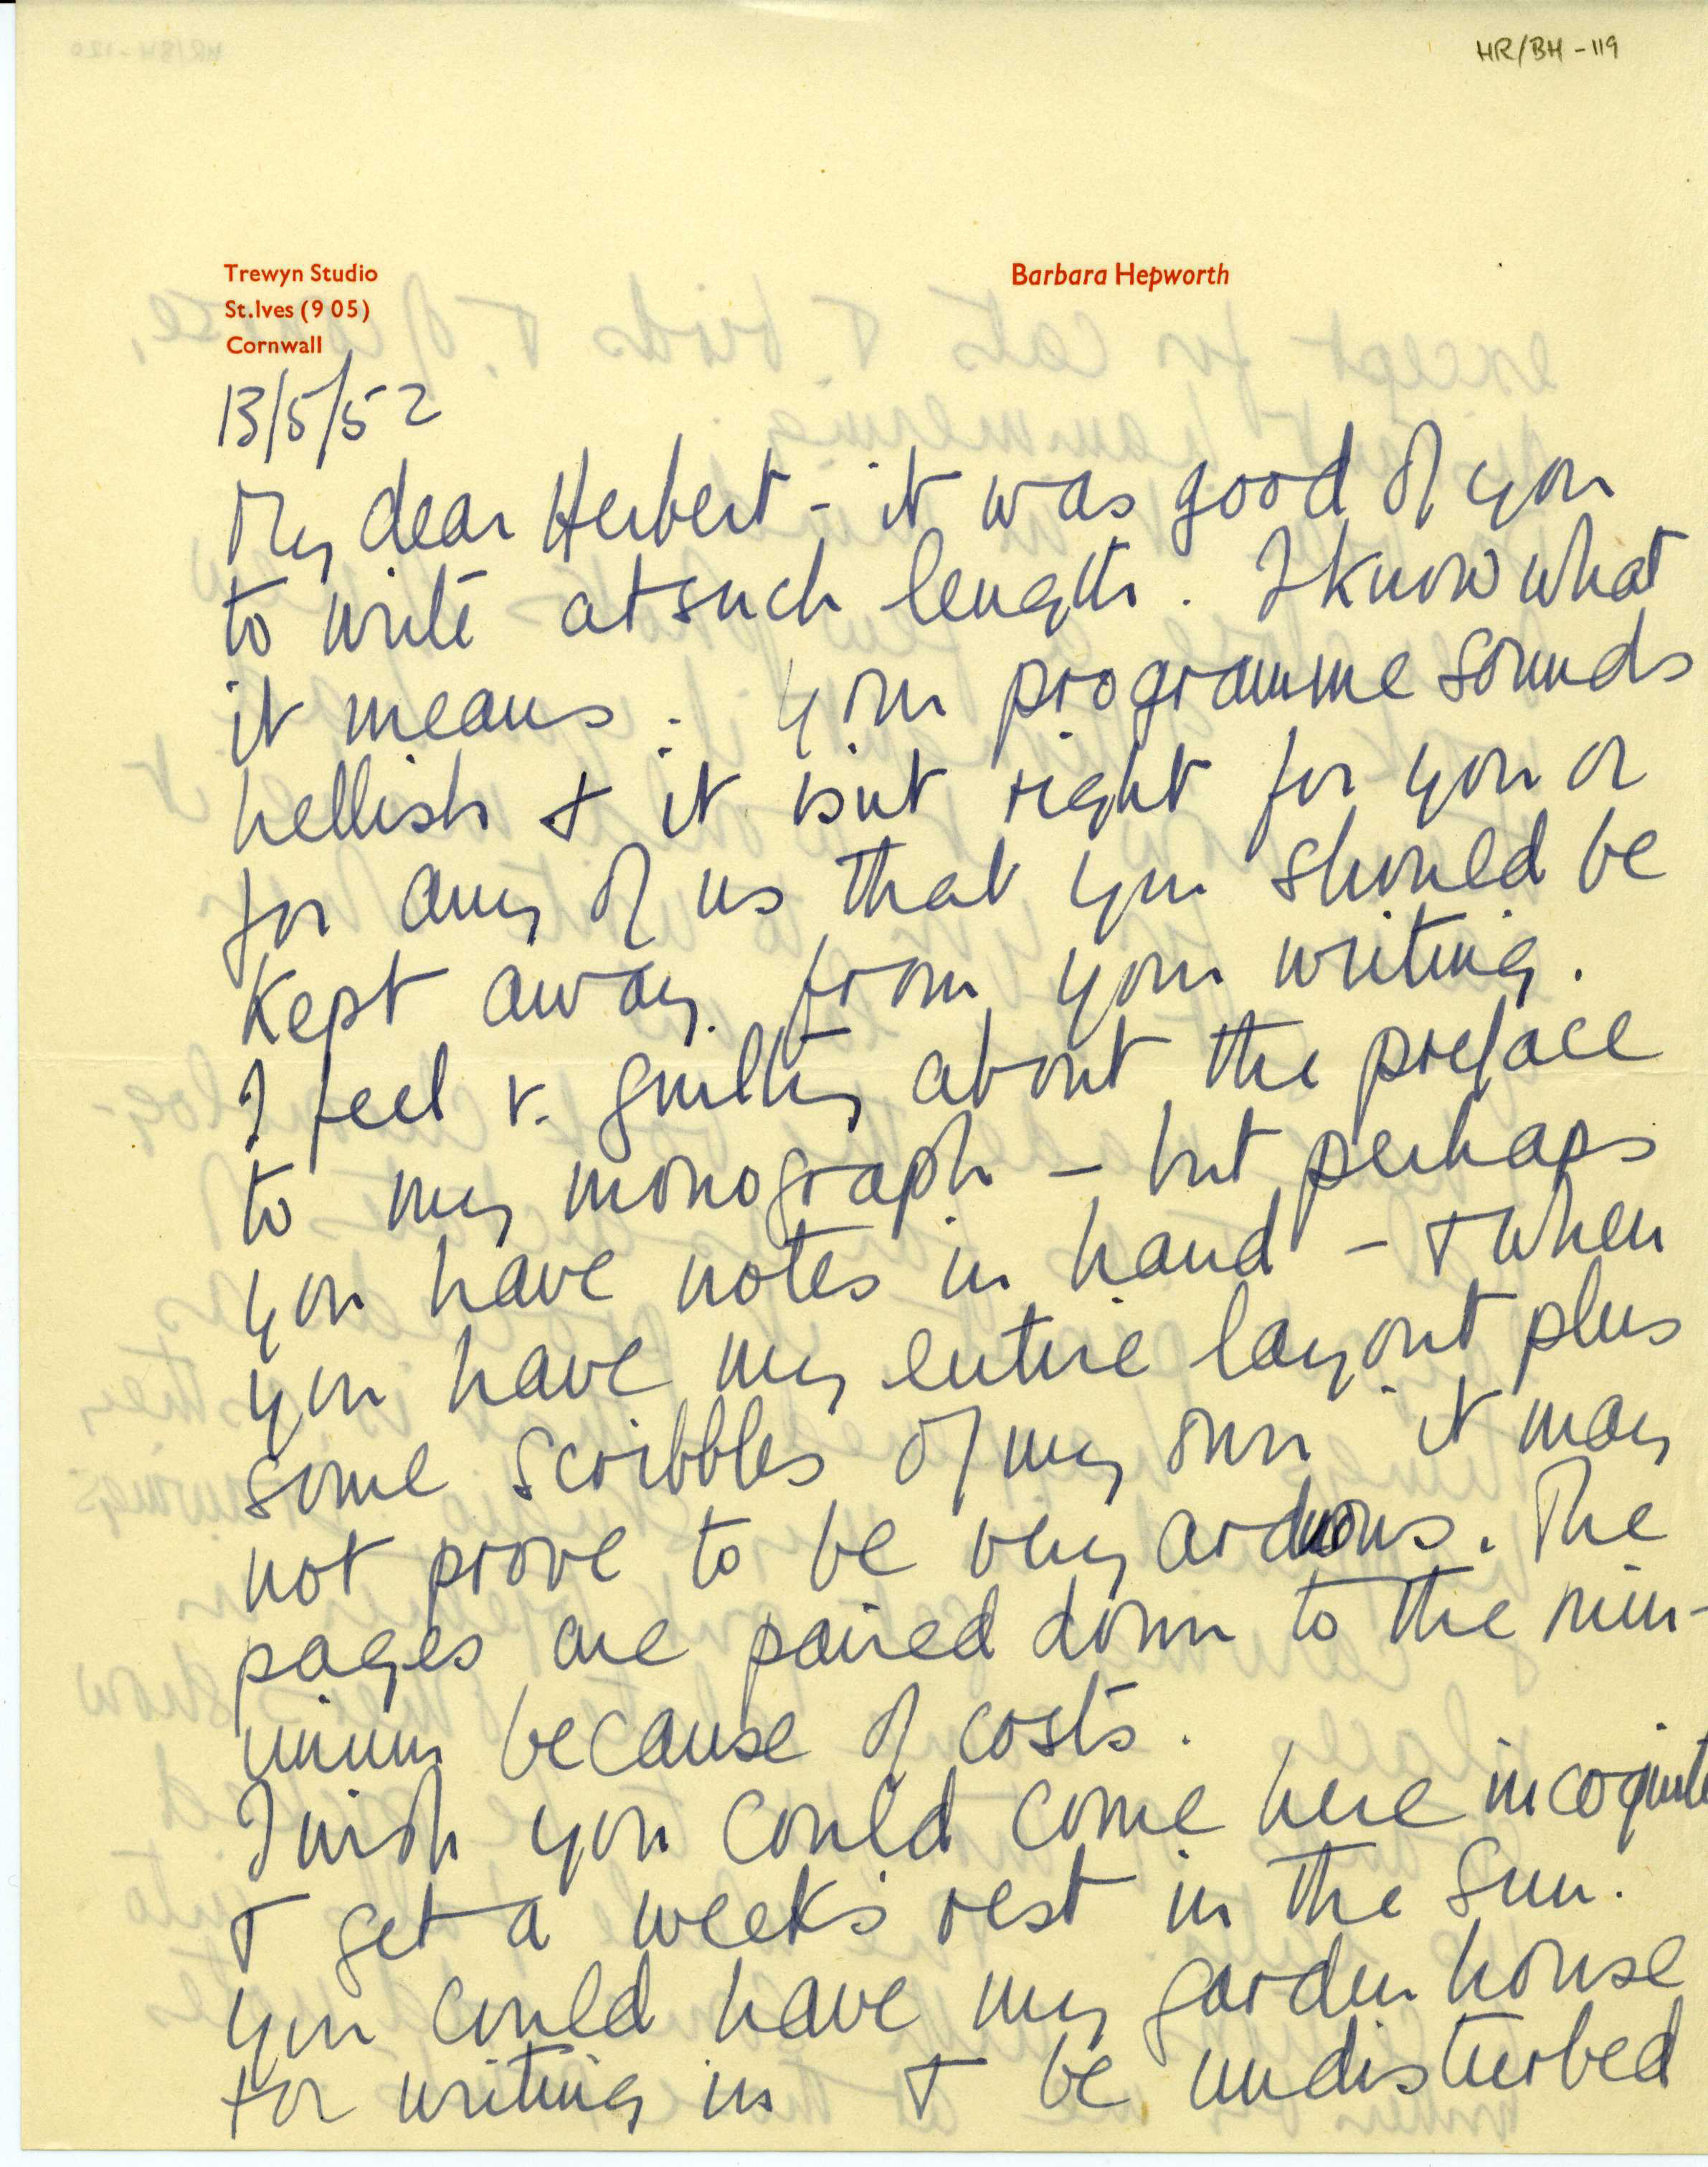 HR/BH - 119
Trewyn Studio
St.Ives (9 05)
Cornwall
Barbara Hepworth
13/5/52
My dear Herbert - it was good of you
to write at such length. I know what
it means. Your programme sounds
hellish & it isnt right for you or
for any of us that you should be
kept away from your writing.
I feel v. guilty about the preface
to my monograph - but perhaps
you have notes in hand - & when
you have my entire layout plus
some scribbles of my own it may
not prove to be very arduous. The
pages are paired down to the min-
imum because of costs.
I wish you could come here incognito
& get a week's rest in the sun.
You could have my garden house
for writing in & be undisturbed